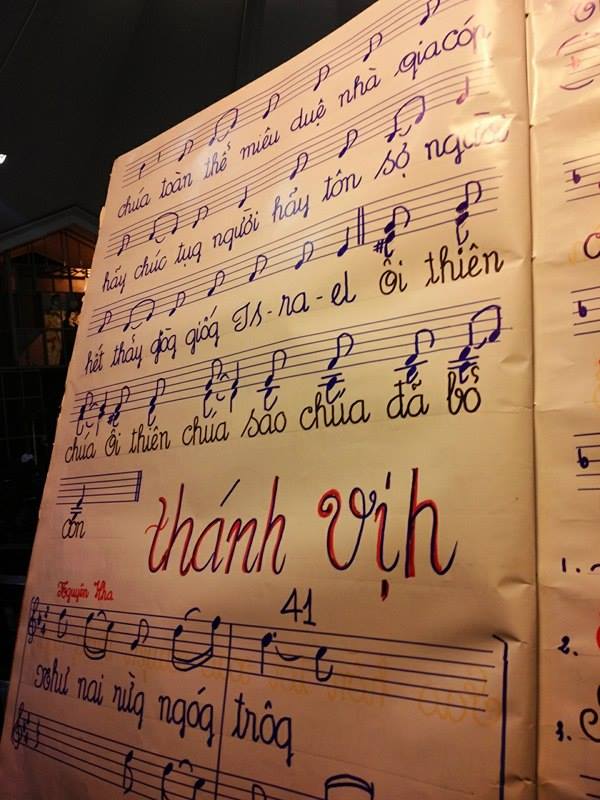 chúa toàn thể miêu duệ nhà giacóp
hãy chúc tụq người hãy tôn sợ người
hết thảy gòq giốq Is-ra-el Ôi thiên
chúa Ôi thiên chúa sao chúa đã bỏ
con
thánh vịh
Nguyên Kha
41
Như nai rừq ngóq trôq
1.
2.
3.